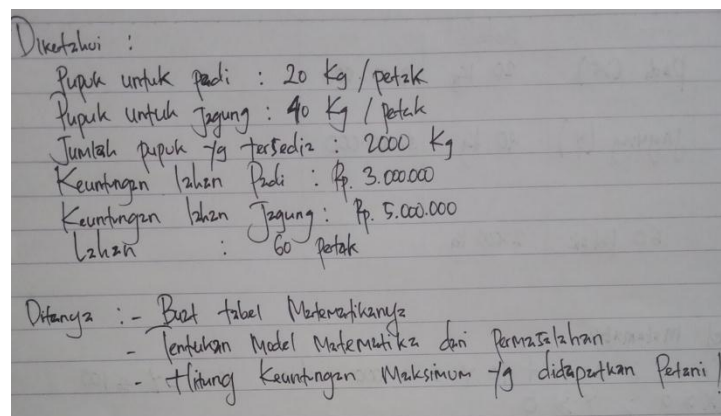 Diketahui :
Pupuk untuk padi : 20 Kg / petak
Pupuk untuk Jagung : 40 Kg / Petak
Jumlah pupuk yg tersedia : 2000 Kg
Keuntungan lahan Padi : Rp. 3.000.000
Keuntungan lahan Jagung : Rp. 5.000.000
Lahan : 60 Petak
Ditanya : - Buat tabel Matematikanya
- Tentukan Model Matematika dari Permasalahan
- Hitung Keuntungan Maksimum yg didapatkan Petani !